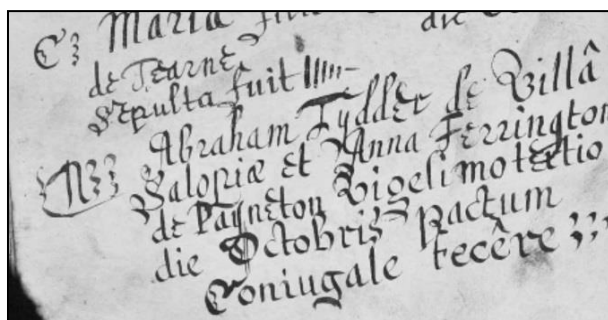 C: Maria die
de Tearne
Sepulta fuit
N: Abraham Tydder de Villâ
Salopiæ et Anna Ferrington
de Payneton Vigesimo tertio
die Octobris Pactum
Coniugale fecêre